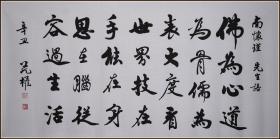 南懷瑾 先生語
佛為心道
為骨儒為
表大度看
世界技在
手能在身
思在腦從
容過生活
辛丑